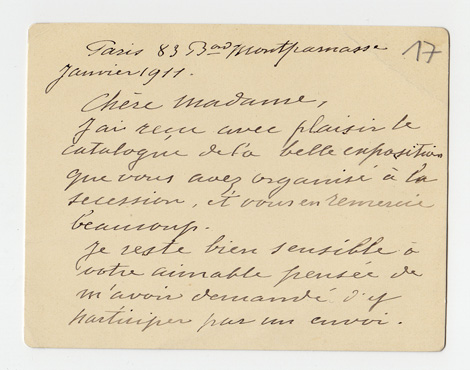 Paris 83 Bard Montparnasse
17
Janvier 1911.
Chère Madame,
J'ai reçu avec plaisir le
catalogue de la belle exposition
que vous avez organisé à la
secession, et vous en remercie
beaucoup.
Je reste bien sensible à
votre aimable pensée de
m'avoir demandé d'y
participer par un envoi.